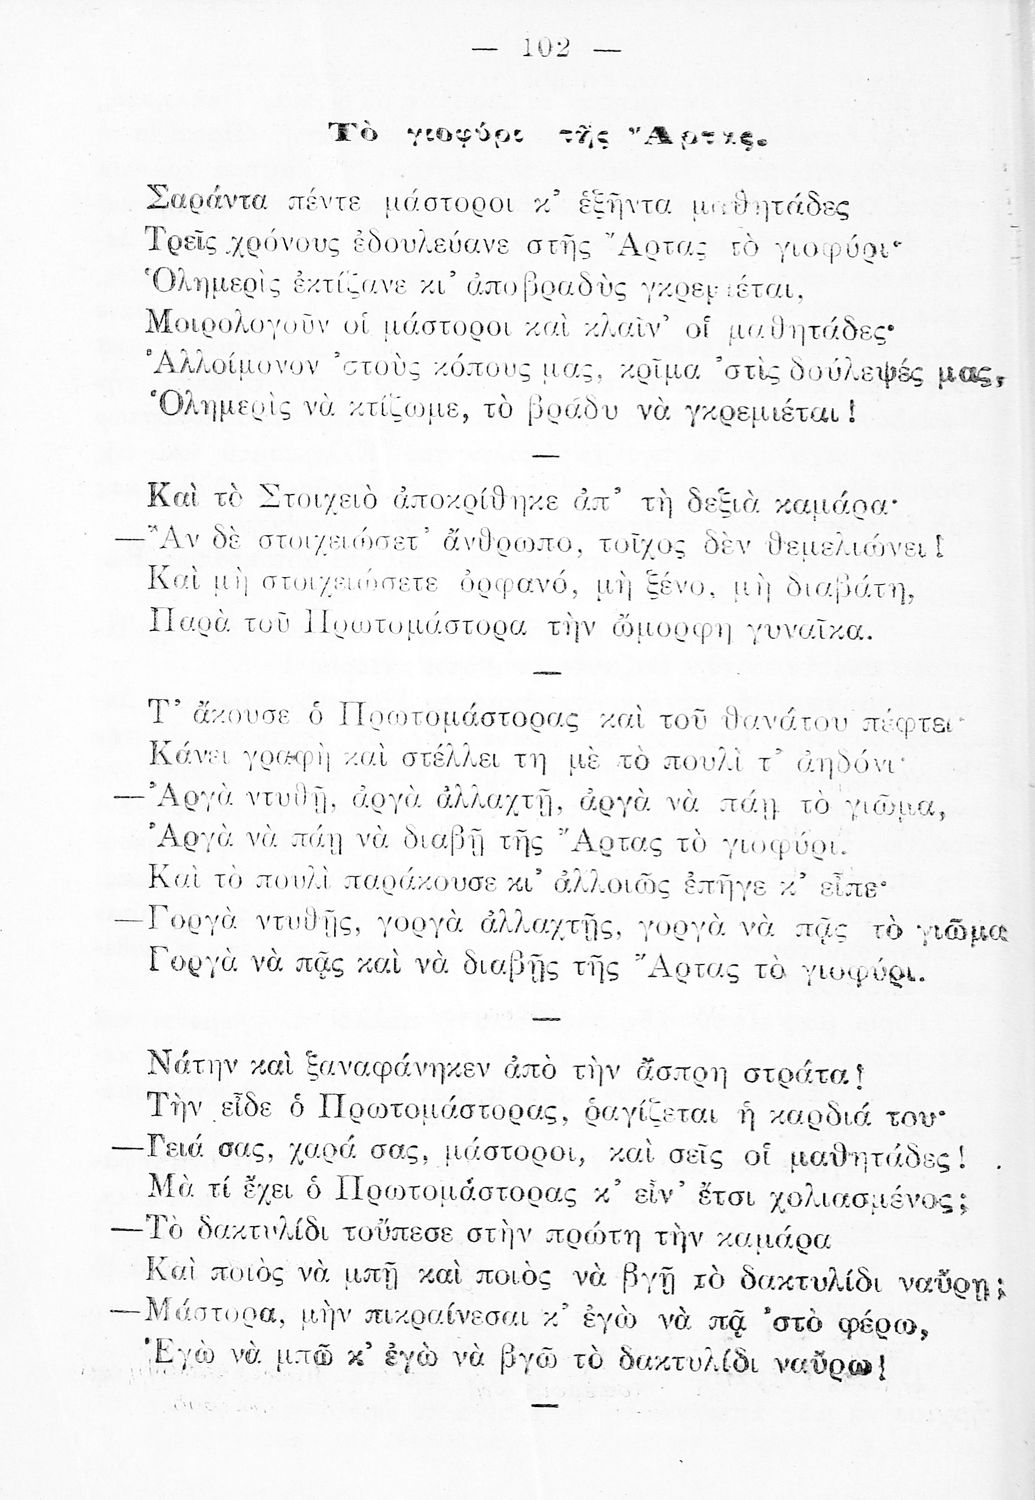 — 102 —
Τὸ γιοφύρι τῆς Ἄρτας.
Σαράντα πέντε μάστοροι κ’ ἑξῆντα μαθητάδες
Τρεῖς χρόνους ἐδουλεύανε στῆς Ἄρτας τὸ γιοφύρι·
Ὁλημερὶς ἐκτίζανε κι’ ἀποβραδὺς γκρεμιέται,
Μοιρολογοῦν οἱ μάστοροι καὶ κλαῖν’ οἱ μαθητάδες·
Ἀλλοίμονον ’στοὺς κόπους μας, κρῖμα ’στὶς δούλεψές μας,
Ὁλημερὶς νὰ κτίζωμε, τὸ βράδυ νὰ γκρεμιέται!
—
Καὶ τὸ Στοιχειὸ ἀποκρίθηκε ἀπ’ τὴ δεξιὰ καμάρα·
—Ἂν δὲ στοιχειώσετ’ ἄνθρωπο, τοῖχος δὲν θεμελιώνει!
Καὶ μὴ στοιχειώσετε ὀρφανό, μὴ ξένο, μὴ διαβάτη,
Παρὰ τοῦ Πρωτομάστορα τὴν ὤμορφη γυναῖκα.
—
Τ’ ἄκουσε ὁ Πρωτομάστορας καὶ τοῦ θανάτου πέφτει·
Κάνει γραφὴ καὶ στέλλει τη μὲ τὸ πουλὶ τ’ ἀηδόνι·
—Ἀργὰ ντυθῇ, ἀργὰ ἀλλαχτῇ, ἀργὰ νὰ πάῃ τὸ γιῶμα,
Ἀργὰ νὰ πάῃ νὰ διαβῇ τῆς Ἄρτας τὸ γιοφύρι.
Καὶ τὸ πουλὶ παράκουσε κι’ ἀλλοιῶς ἐπῆγε κ’ εἶπε·
—Γοργὰ ντυθῇς, γοργὰ ἀλλαχτῇς, γοργὰ νὰ πᾷς τὸ γιῶμα
Γοργὰ νὰ πᾷς καὶ νὰ διαβῇς τῆς Ἄρτας τὸ γιοφύρι.
—
Νάτην καὶ ξαναφάνηκεν ἀπὸ τὴν ἄσπρη στράτα!
Τὴν εἶδε ὁ Πρωτομάστορας, ῥαγίζεται ἡ καρδιά του·
—Γειά σας, χαρά σας, μάστοροι, καὶ σεῖς οἱ μαθητάδες!
Μὰ τί ἔχει ὁ Πρωτομάστορας κ’ εἶν’ ἔτσι χολιασμένος;
—Τὸ δακτυλίδι τοὔπεσε στὴν πρώτη τὴν καμάρα
Καὶ ποιὸς νὰ μπῇ καὶ ποιὸς νὰ βγῇ τὸ δακτυλίδι ναὕρῃ;
—Μάστορα, μὴν πικραίνεσαι κ’ ἐγὼ νὰ πᾷ ’στὸ φέρω,
Ἐγὼ νὰ μπῶ κ’ ἐγὼ νὰ βγῶ τὸ δακτυλίδι ναὕρω!
—